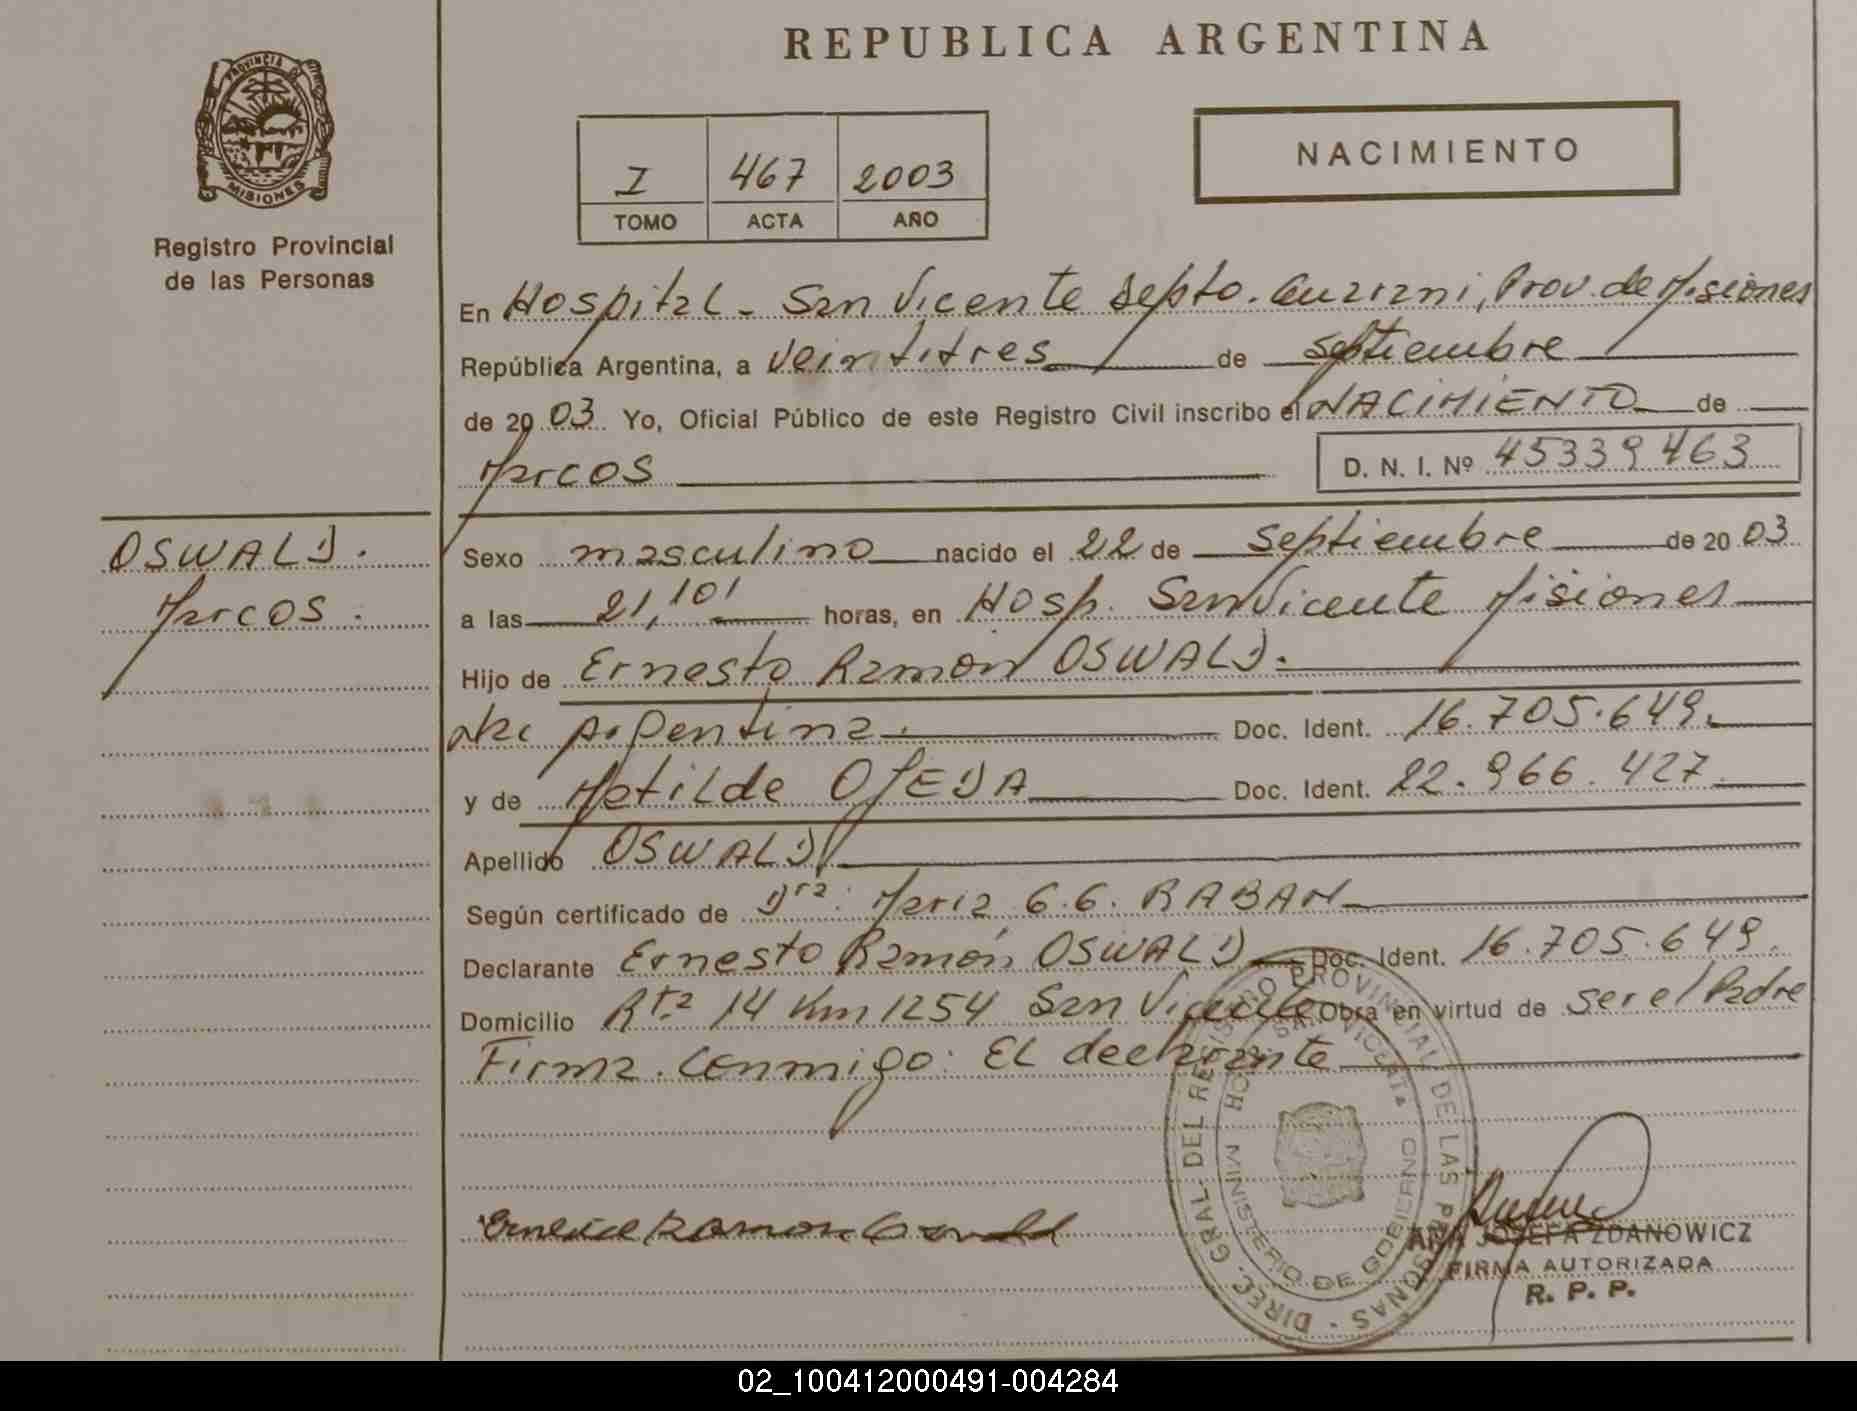 REPUBLICA ARGENTINA
PROVINCIA DE
MISIONES
Registro Provincial
de las Personas
I 467 2003
TOMO ACTA AÑO
NACIMIENTO
En Hospital - San Vicente Depto. Guarani, Prov. de Misiones
República Argentina, a veintitres de septiembre
de 2003 Yo, Oficial Público de este Registro Civil inscribo el NACIMIENTO de
Marcos
D. N. I. Nº 45339463
OSWALD.
Marcos.
Sexo masculino nacido el 22 de septiembre de 2003
a las 21,10' horas, en Hosp. San Vicente Misiones
Hijo de Ernesto Ramón OSWALD.
Nac Argentina. Doc. Ident. 16.705.649.
y de Matilde OJEDA Doc. Ident. 22.966.427
Apellido OSWALD
Según certificado de Dra: Maria G.G. RABAN
Declarante Ernesto Ramón OSWALD Doc. Ident. 16.705.649.
Domicilio Rta 14 Km 1254 San Vicente Obra en virtud de ser el Padre
Firma. Conmigo: EL declarante
DIREC. GRAL. DEL REGISTRO PROVINCIAL DE LAS PERSONAS
MINISTERIO DE GOBIERNO
Ramon Oswald
ANA JOSEFA ZDANOWICZ
FIRMA AUTORIZADA
R. P. P.
02_100412000491-004284